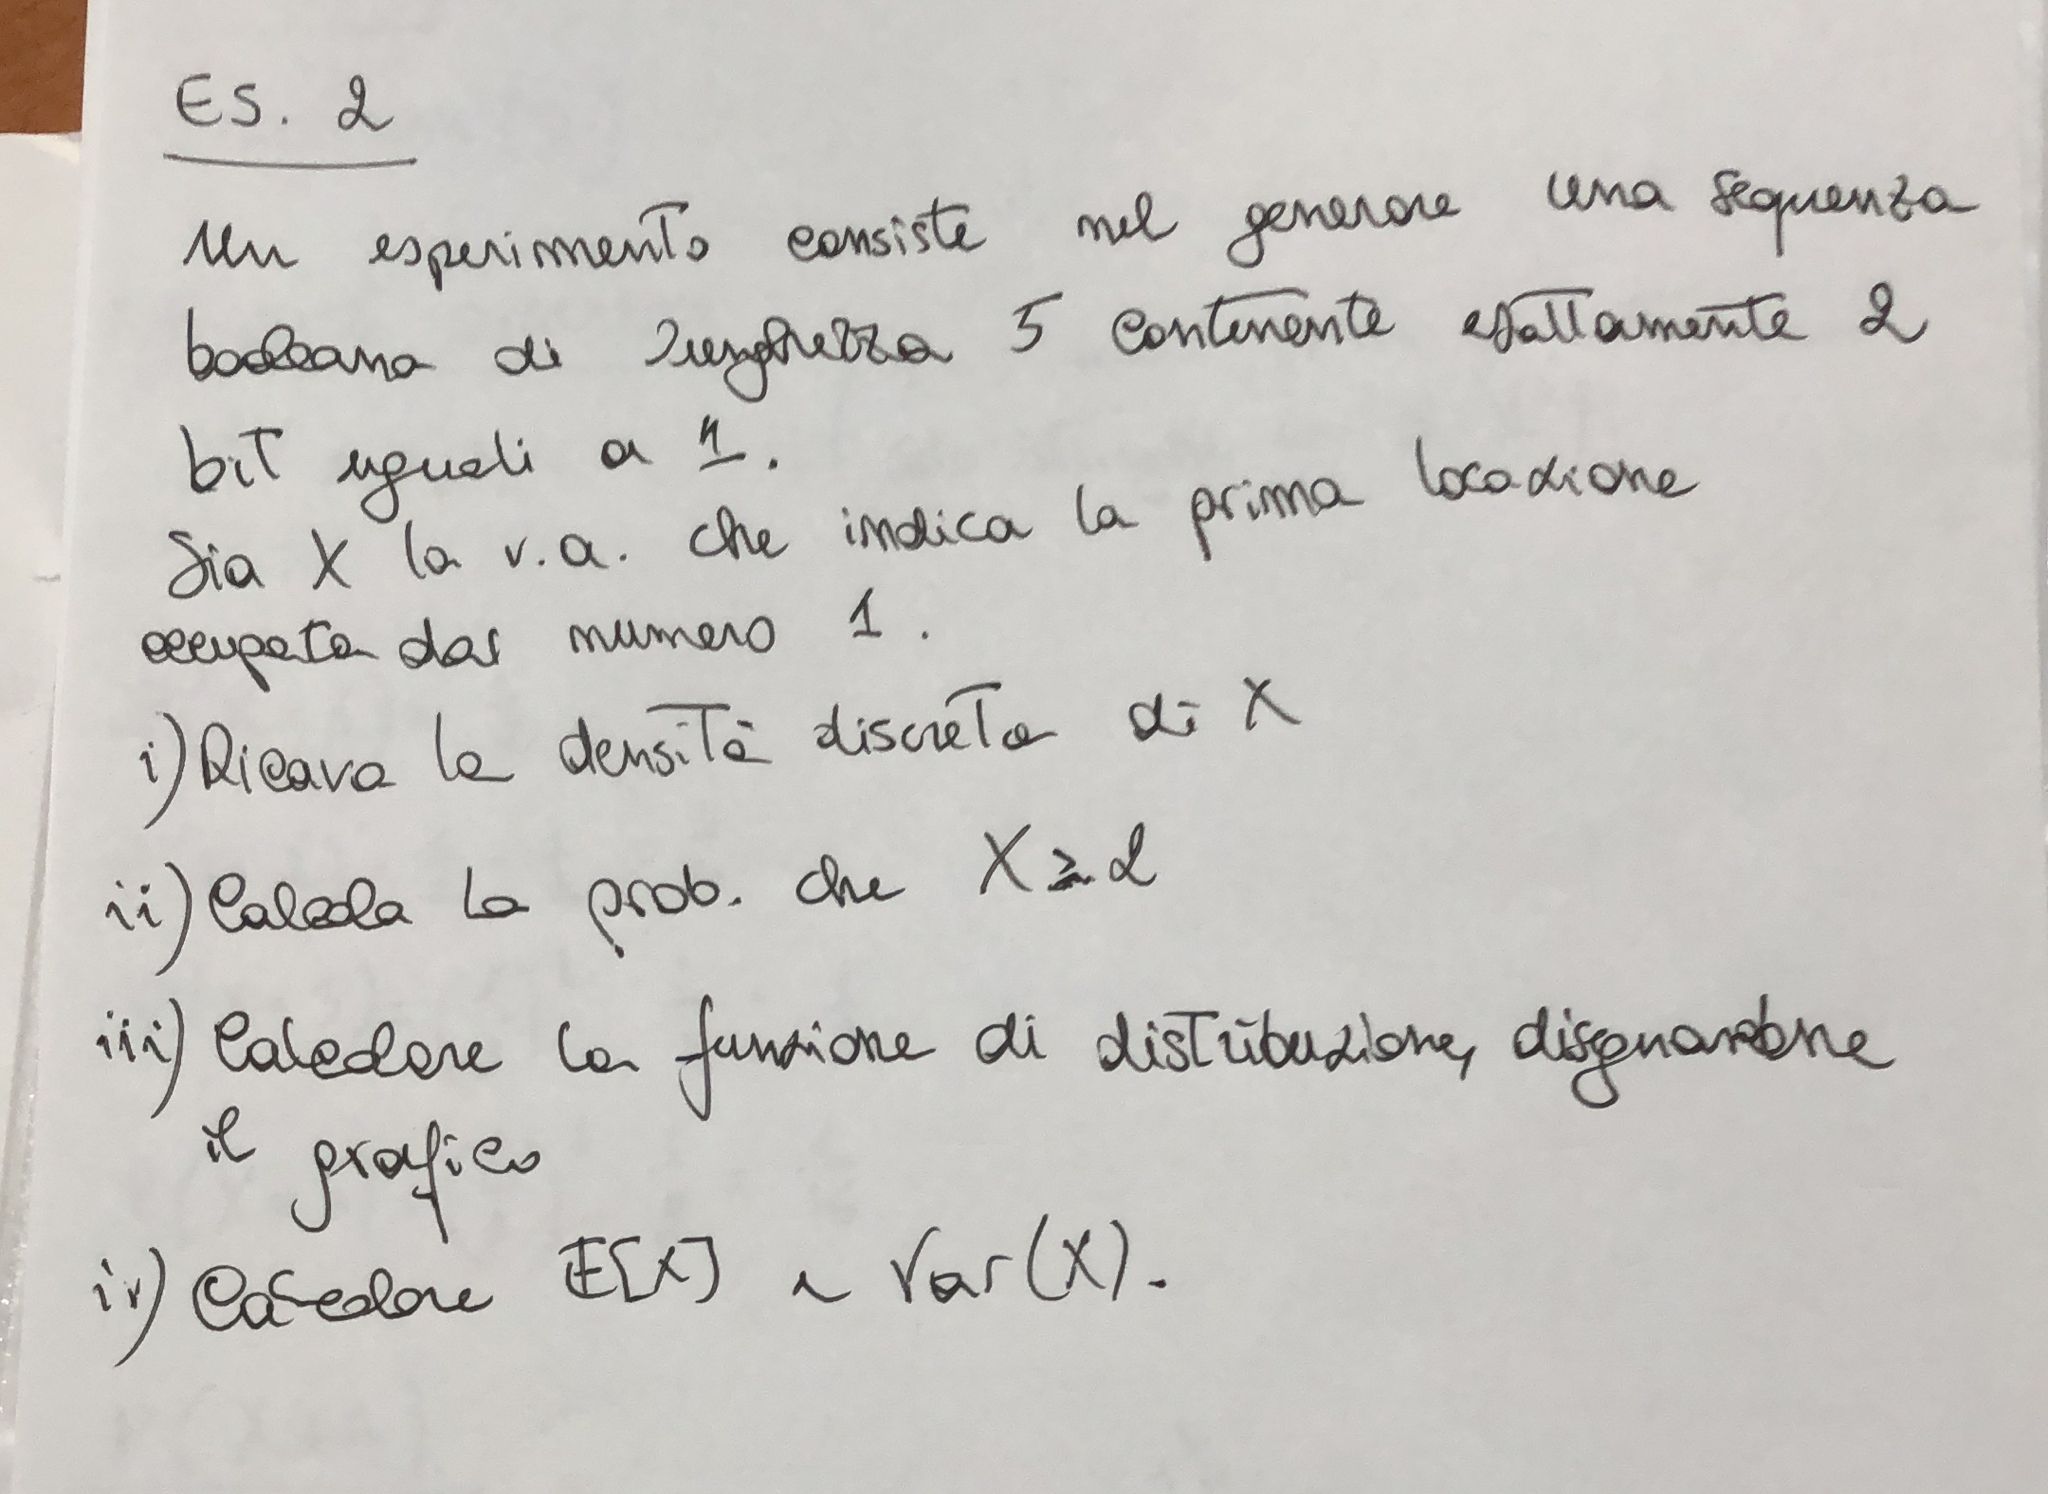 ES. 2
Un esperimento consiste nel generare una sequenza
booleana di lunghezza 5 contenente esattamente 2
bit uguali a 1.
Sia X la v.a. che indica la prima locazione
occupata dal numero 1.
i) Ricava la densità discreta di X
ii) Calcola la prob. che X ≥ 2
iii) Calcolare la funzione di distribuzione, disegnandone
il grafico
iv) Calcolare E[X] e Var(X).